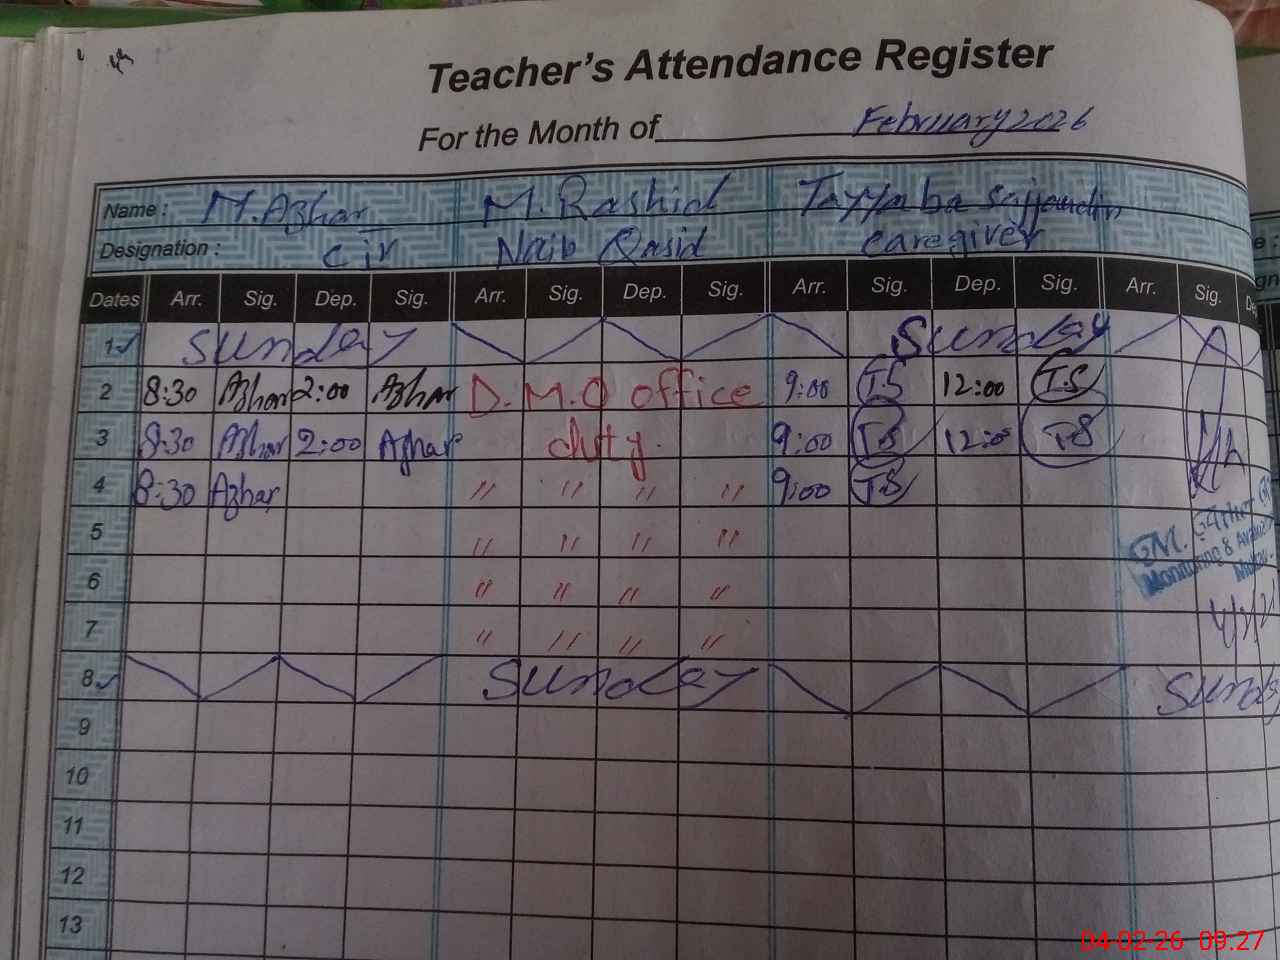 Teacher's Attendance Register
For the Month of February 2026
Name : M. Azhar M. Rashid Tayyaba
Designation : Naib Qasid caregiver
Dates Arr. Sig. Dep. Sig. Arr. Sig. Dep. Sig. Arr. Sig. Dep. Sig. Arr. Sig.
1 Sunday Sunday
2 8:30 Azhar 2:00 Azhar D.M.O office 9:00 T.S 12:00 T.S
3 8:30 Azhar 2:00 Azhar duty. 9:00 T.S 12:00 T.S
4 8:30 Azhar " " " " 9:00 T.S
5 " " " "
6 " " " "
7 " " " "
8 Sunday Sunday
9
10
11
12
13
Monitoring &
04-02-26 09:27